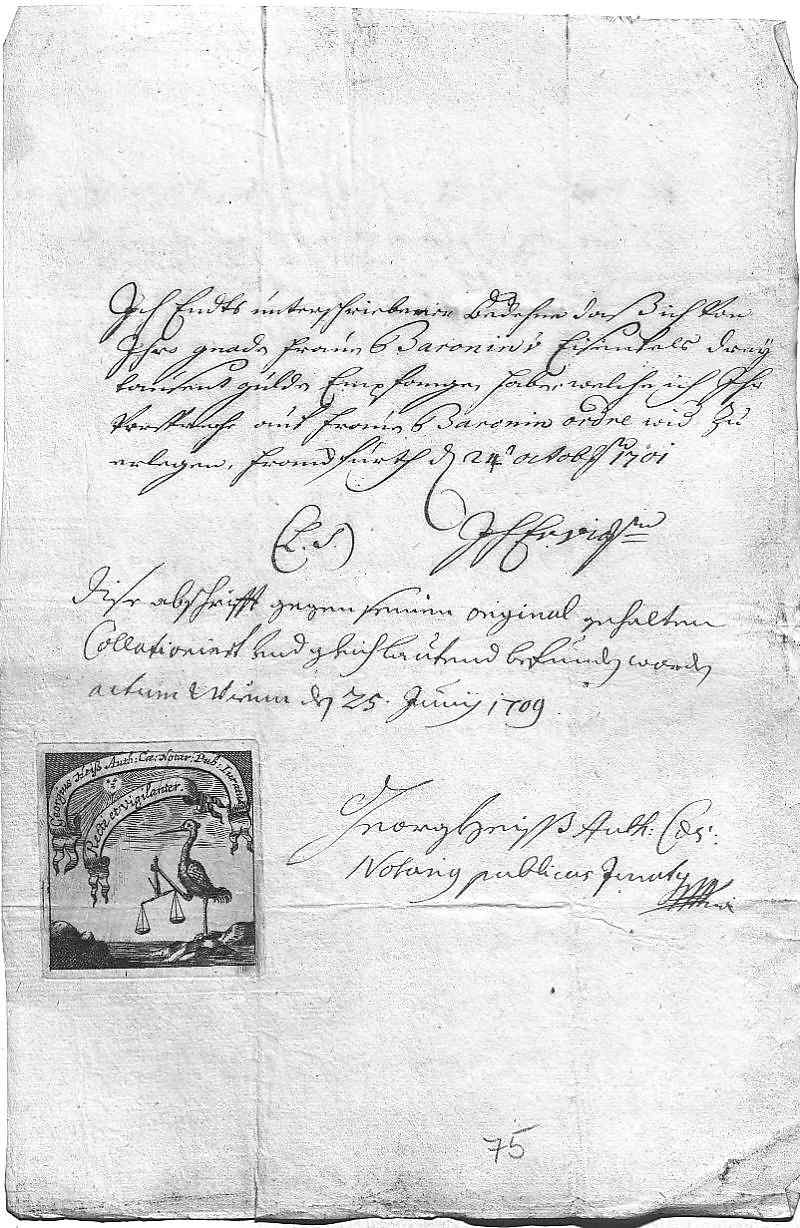 Ich Endts unterschriebener Bekehne daß ich von
Ihro gnade fraue Baronin v Eisenfels drey
tausent gulde Empfangen habe, welche ich Ihr
auf fraue Baronin ordre wid zu
erlegen. franckfurth d 24 octob 1701
(L.S.)
Dise abschrifft gegen seinem original gehalten
Collationirt und gleichlautend befunden worden
actum Wienn den 25. Junij 1709.
Georgius Heiß Auth: Cæ: Notar: Pub: Juratus
Recte et vigilanter.
Georg Heiß Auth: Cæs:
Notarius publicus Juratus
75